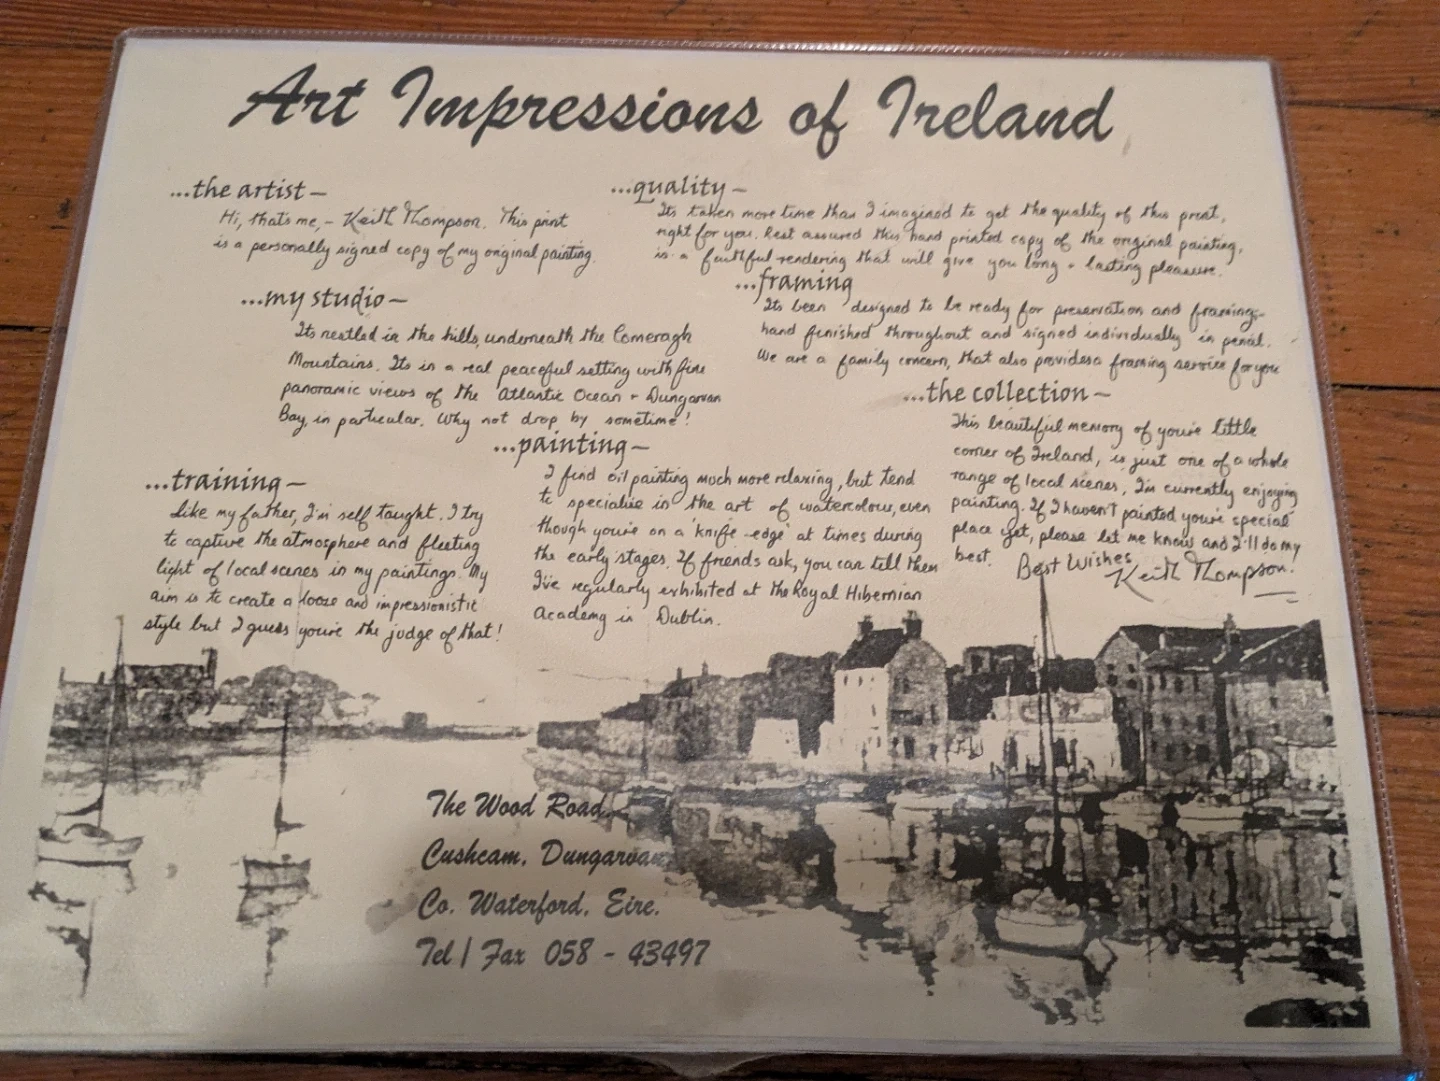 Art Impressions of Ireland
...the artist –
Hi, that's me, - Keith Thompson. This print
is a personally signed copy of my original painting.
...quality –
Its taken more time than I imagined to get the quality of this print,
right for you. Rest assured this hand printed copy of the original painting,
is a faithful rendering that will give you long - lasting pleasure.
...my studio –
Its nestled in the hills, underneath the Comeragh
Mountains. Its in a real peaceful setting with fine
panoramic views of the Atlantic Ocean + Dungarvan
Bay, in particular. Why not drop by sometime!
...framing
Its been designed to be ready for preservation and framing-
hand finished throughout and signed individually in pencil.
We are a family concern, that also provides a framing service for you
...the collection –
This beautiful memory of you're little
corner of Ireland, is just one of a whole
range of local scenes, I'm currently enjoying
painting. If I haven't painted you're special
place yet, please let me know and I'll do my
best.
Best Wishes
Keith Thompson.
...painting –
I find oil painting much more relaxing, but tend
to specialise in the art of watercolour, even
though you're on a 'knife-edge' at times during
the early stages. If friends ask, you can tell them
I've regularly exhibited at the Royal Hibernian
Academy in Dublin.
...training –
Like my father, I'm self taught. I try
to capture the atmosphere and fleeting
light of local scenes in my paintings. My
aim is to create a loose and impressionistic
style but I guess you're the judge of that!
The Wood Road,
Cushcam, Dungarvan
Co. Waterford, Eire.
Tel / Fax 058 - 43497